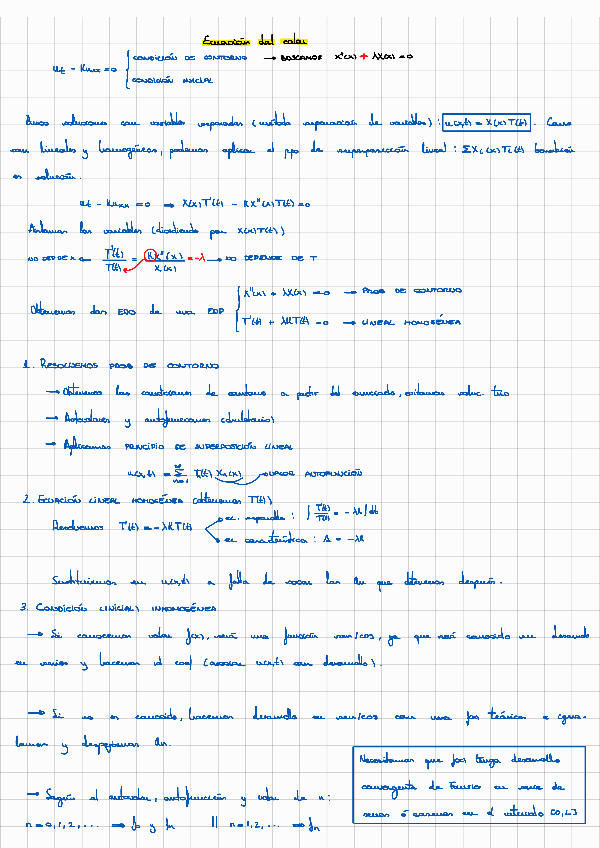 Ecuación del calor
ut - Kuxx = 0 { CONDICIÓN DE CONTORNO → BUSCAMOS X''(x) + λX(x) = 0
CONDICIÓN INICIAL
soluciones con variables separadas (método separación de variables) : u(x,t) = X(x)T(t) . Como
son lineales y homogéneas, podemos aplicar el ppo de superposición lineal : ΣXi(x)Ti(t) también
es solución.
ut - Kuxx = 0 → X(x)T'(t) - KX''(x)T(t) = 0
las variables (dividiendo por X(x)T(t))
NO DEP DE X ← T'(t)/T(t) = KX''(x)/X(x) = -λ → NO DEPENDE DE T
Obtenemos dos EDO de una EDP { X''(x) + λX(x) = 0 → PROB DE CONTORNO
T'(t) + λKT(t) = 0 → LINEAL HOMOGÉNEA
1. RESOLVEMOS PROB DE CONTORNO
→ Obtenemos las condiciones de contorno a partir del enunciado, evitamos soluc.
→ Autovalores y autofunciones
→ Aplicamos PRINCIPIO DE SUPERPOSICIÓN LINEAL
u(x,t) = Σ Tn(t) Xn(x) → AUTOFUNCIÓN
2. ECUACIÓN LINEAL HOMOGÉNEA (obtenemos T(t))
Resolvemos T'(t) = -λKT(t) ec. separable : ∫ T'(t)/T(t) = -λK∫dt
ec característica : Λ = -λK
Sustituimos en u(x,t) a falta de sacar las An que obtenemos después.
3. CONDICIÓN (INICIAL) INHOMOGÉNEA
→ Si conocemos valor f(x), será una función sen/cos, ya que será conocido su desarrollo
en series y hacemos id coef (u(x,t) con desarrollo).
→ Si no es conocido, hacemos desarrollo en sen/cos con una f(x) teórica e igua-
lamos y despejamos An.
Necesitamos que f(x) tenga desarrollo
convergente de Fourier en serie de
senos ó cosenos en el intervalo [0,L]
→ Según el autovalor, autofunción y valor de n:
n = 0,1,2,... ⇒ f0 y fn || n = 1,2,... ⇒ fn